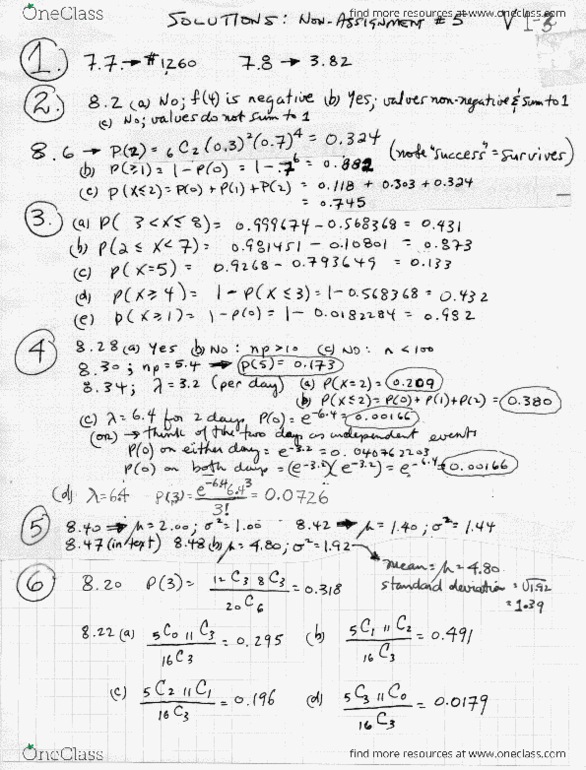 OneClass
find more resources at www.oneclass.com
SOLUTIONS: NON-ASSIGNMENT #5 V1-3
1. 7.7 → #1260 7.8 → 3.82
2. 8.2 (a) No; f(4) is negative (b) Yes; values non-negative & sum to 1
(c) No; values do not sum to 1
8.6 → P(2) = 6C2 (0.3)²(0.7)⁴ = 0.324 (note "success" = survives)
(b) P(≥1) = 1 - P(0) = 1 - .7⁶ = 0.882
(c) P(X≤2) = P(0) + P(1) + P(2) = 0.118 + 0.303 + 0.324
= 0.745
3. (a) P( 3 < X ≤ 8) = 0.999674 - 0.568368 = 0.431
(b) P(2 ≤ X < 7) = 0.981451 - 0.10801 = 0.873
(c) P(X=5) = 0.9268 - 0.793649 = 0.133
(d) P(X≥4) = 1 - P(X≤3) = 1 - 0.568368 = 0.432
(e) P(X≥1) = 1 - P(0) = 1 - 0.0182284 = 0.982
4 8.28 (a) Yes (b) No: np>10 (c) NO: n<100
8.30; np = 5.4 → P(5) = 0.173
8.34; λ = 3.2 (per day) (a) P(X=2) = 0.209
(b) P(X≤2) = P(0) + P(1) + P(2) = 0.380
(c) λ = 6.4 for 2 days P(0) = e^-6.4 = 0.00166
(OR) → think of the two days as independent events
P(0) on either day = e^-3.2 = 0.040762203
P(0) on both days = (e^-3.2)(e^-3.2) = e^-6.4 = 0.00166
(d) λ = 64 P(3) = e^-6.4 6.4³ / 3! = 0.0726
5 8.40 → μ = 2.00; σ² = 1.00 8.42 → μ = 1.40; σ² = 1.44
8.47 (in text) 8.48 (b) μ = 4.80; σ² = 1.92
mean = μ = 4.80
standard deviation = √1.92
= 1.39
6 8.20 P(3) = 12C3 8C3 / 20C6 = 0.318
8.22 (a) 5C0 11C3 / 16C3 = 0.295 (b) 5C1 11C2 / 16C3 = 0.491
(c) 5C2 11C1 / 16C3 = 0.196 (d) 5C3 11C0 / 16C3 = 0.0179
OneClass
find more resources at www.oneclass.com